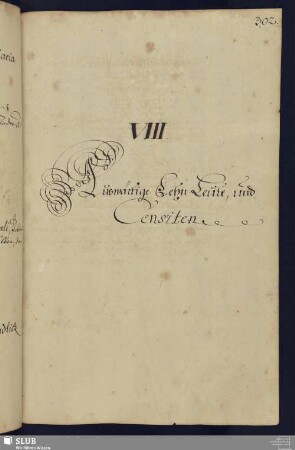 302.
VIII
Auswärtige Lehn Leüte, und
Censiten.
SLUB
Wir führen Wissen.